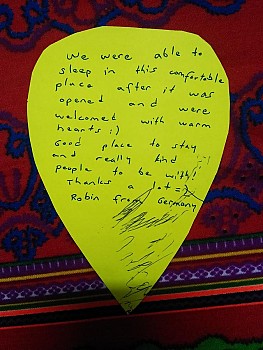 We were able to
sleep in this comfortable
place after it was
opened and were
welcomed with warm
hearts :)
Good place to stay
and really kind :-)
people to be with!
Thanks a lot =)
Robin from Germany